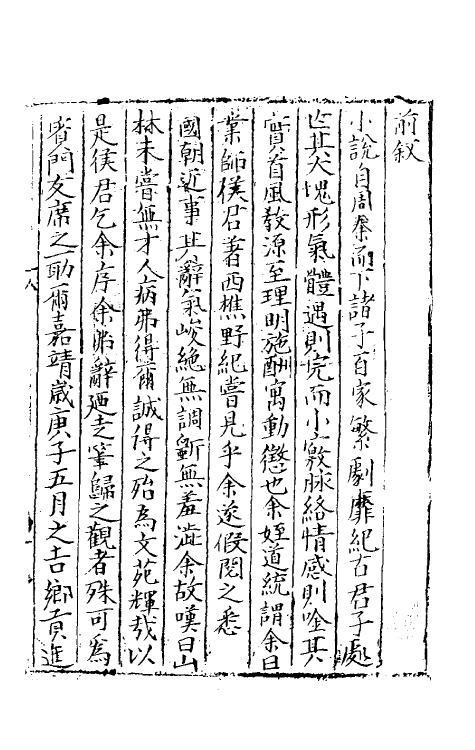 前叙
小說自周秦而下諸子百家繁劇靡紀古君子處
世其大塊形氣體遇則完而小竅脉絡情感則唫其
實首風教源至理明施酬寓動懲也余姪道統謂余曰
業師侯君著西樵野紀嘗見乎余遂假閱之悉
國朝近事其辭氣峻絕無調斲無羞澁余故嘆曰山
林未嘗無才人病弗得爾誠得之殆為文苑輝哉以
是侯君乞余序余弗辭廼走筆歸之觀者殊可為
賓門友席之一助爾嘉靖歲庚子五月之吉鄉貢進